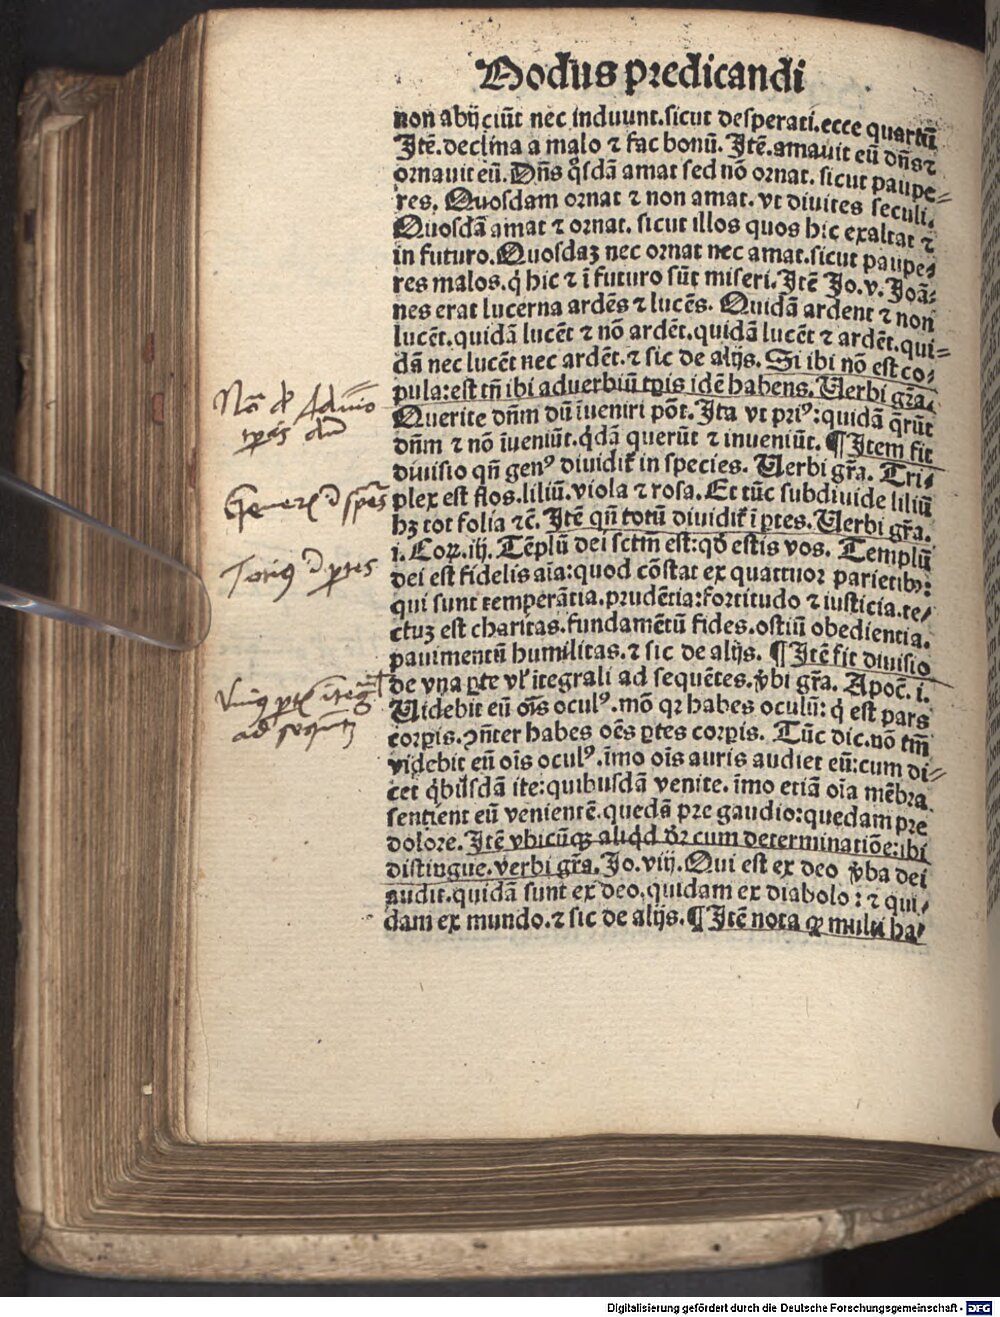 Modus predicandi
non abijciūt nec induunt.sicut desperati.ecce quartū
Itē.declina a malo ⁊ fac bonū. Itē.amauit eū dn̄s ⁊
ornauit eū. Dn̄s q̄sdā amat sed nō ornat. sicut paupe⸗
res. Quosdam ornat ⁊ non amat. vt diuites seculi.
Quosdā amat ⁊ ornat. sicut illos quos hic exaltat ⁊
in futuro. Quosdaꝫ nec ornat nec amat.sicut paupe⸗
res malos.q̇ hic ⁊ ī futuro sūt miseri. Itē Jo.v. Joā⸗
nes erat lucerna ardēs ⁊ lucēs. Quidā ardent ⁊ non
lucēt.quidā lucēt ⁊ nō ardēt.quidā lucēt ⁊ ardēt.qui⸗
dā nec lucēt nec ardēt.⁊ sic de alijs. Si ibi nō est co⸗
pula:est tn̄ ibi aduerbiū tꝑis idē habens. Uerbi gr̄a.
Querite dn̄m dū īueniri pōt. Ita vt priꝰ:quidā q̄rūt
dn̄m ⁊ nō īueniūt.q̇dā querūt ⁊ inueniūt. ¶ Item fit
diuisio qn̄ genꝰ diuidit᷑ in species. Uerbi gr̄a. Tri⸗
plex est flos.liliū.viola ⁊ rosa. Et tūc subdiuide liliū
hꝫ tot folia ⁊c̄. Itē qn̄ totū diuidit᷑ ī ꝑtes. Uerbi gr̄a.
i. Coꝝ. iij. Tēplū dei sctm̄ est:qd̄ estis vos. Templū
dei est fidelis aīa:quod cōstat ex quattuor parietibꝰ:
qui sunt temperātia.prudētia:fortitudo ⁊ iusticia.te⸗
ctuꝫ est charitas.fundamētū fides.ostiū obedientia.
pauimentū humilitas.⁊ sic de alijs. ¶ Itē fit diuisio
de vna ꝑte vl' ītegrali ad sequētes.v̄bi gr̄a. Apoc̄. i.
Uidebit eū oīs oculꝰ.mō qꝛ habes oculū: q̇ est pars
corꝑis.ꝯn̄ter habes oēs ꝑtes corꝑis. Tūc dic.nō tm̄
videbit eū oīs oculꝰ.īmo oīs auris audiet eū:cum di⸗
cet q̇busdā ite:quibusdā venite. īmo etiā oīa mēbra
sentient eū venientē.quedā pre gaudio:quedam pre
dolore. Itē vbicūqꝫ aliqd̄ dr̄ cum determinatiōe:ibi
distingue.verbi gr̄a. Jo. viij. Qui est ex deo v̄ba dei
audit.quidā sunt ex deo.quidam ex diabolo: ⁊ qui⸗
dam ex mundo.⁊ sic de alijs. ¶ Itē nota ꝙ multi ha⸗
ꝑtes
Digitalisierung gefördert durch die Deutsche Forschungsgemeinschaft - DFG